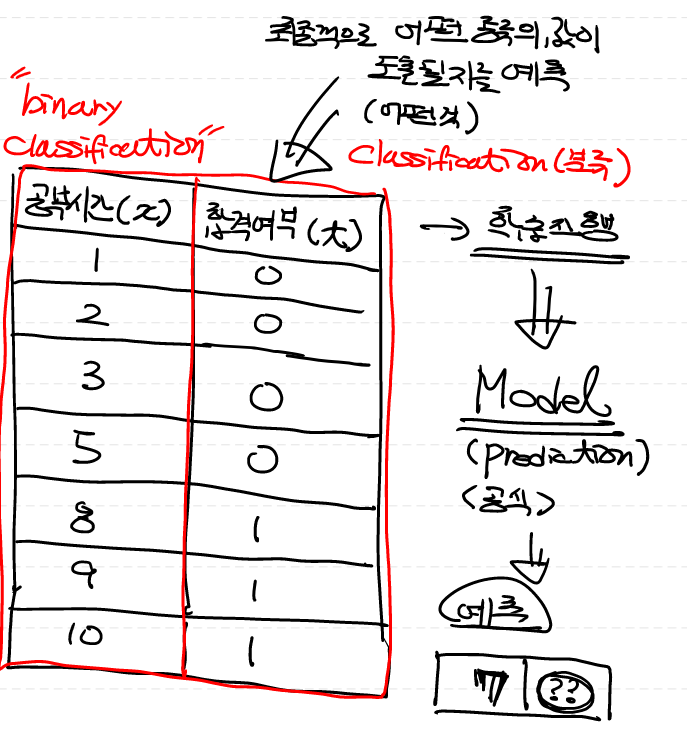 최종적으로 어떤 종류의 값이
도출될지를 예측
(어떤것)
"binary
classification"
Classification(분류)
공부시간(x) 합격여부(t)
1 0
2 0
3 0
5 0
8 1
9 1
10 1
→ 학습진행
Model
(prediction)
<공식>
예측
7 ??